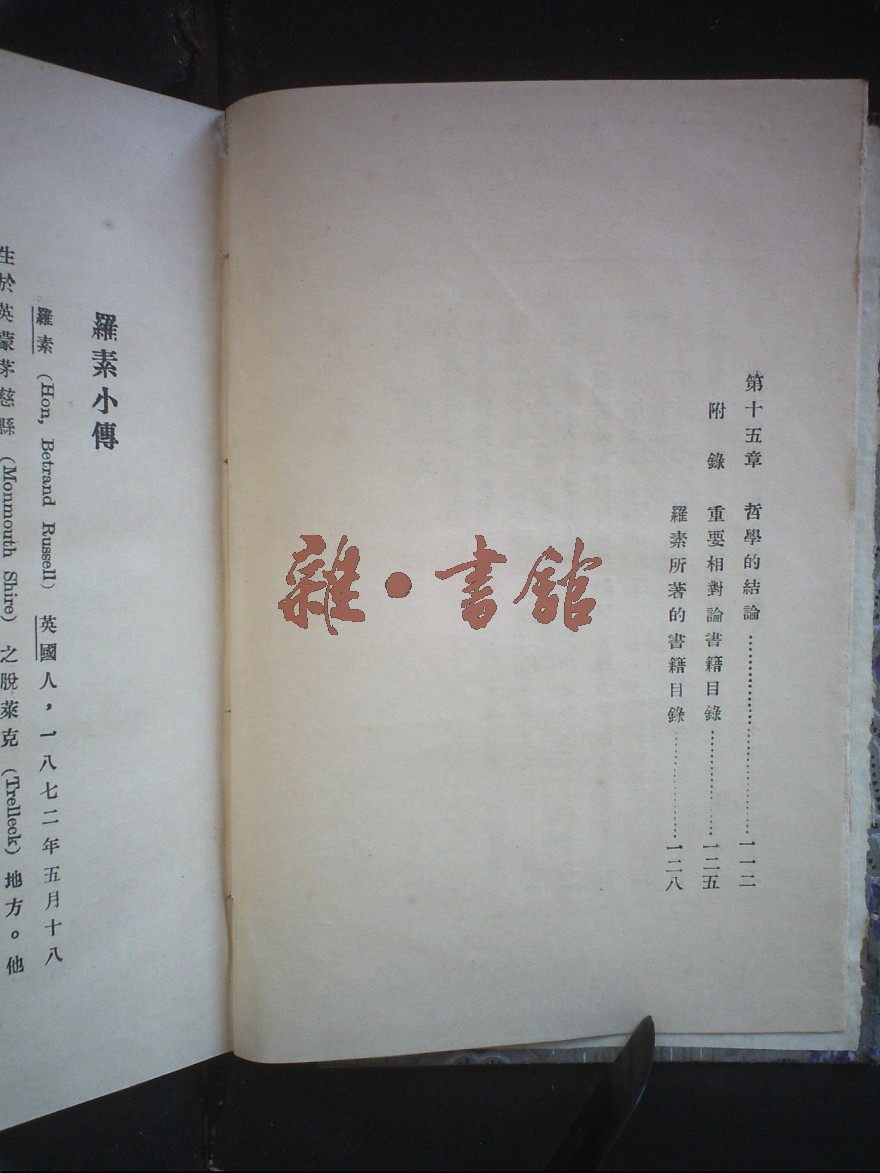 第十五章 哲學的結論……………………一一二
附錄 重要相對論書籍目錄…………一二五
羅素所著的書籍目錄…………一二八
羅素小傳
羅素 (Hon, Betrand Russell) 英國人，一八七二年五月十八
生於英蒙茅慈縣 (Monmouth Shire) 之脫萊克 (Trelleck) 地方。他
雜·書館